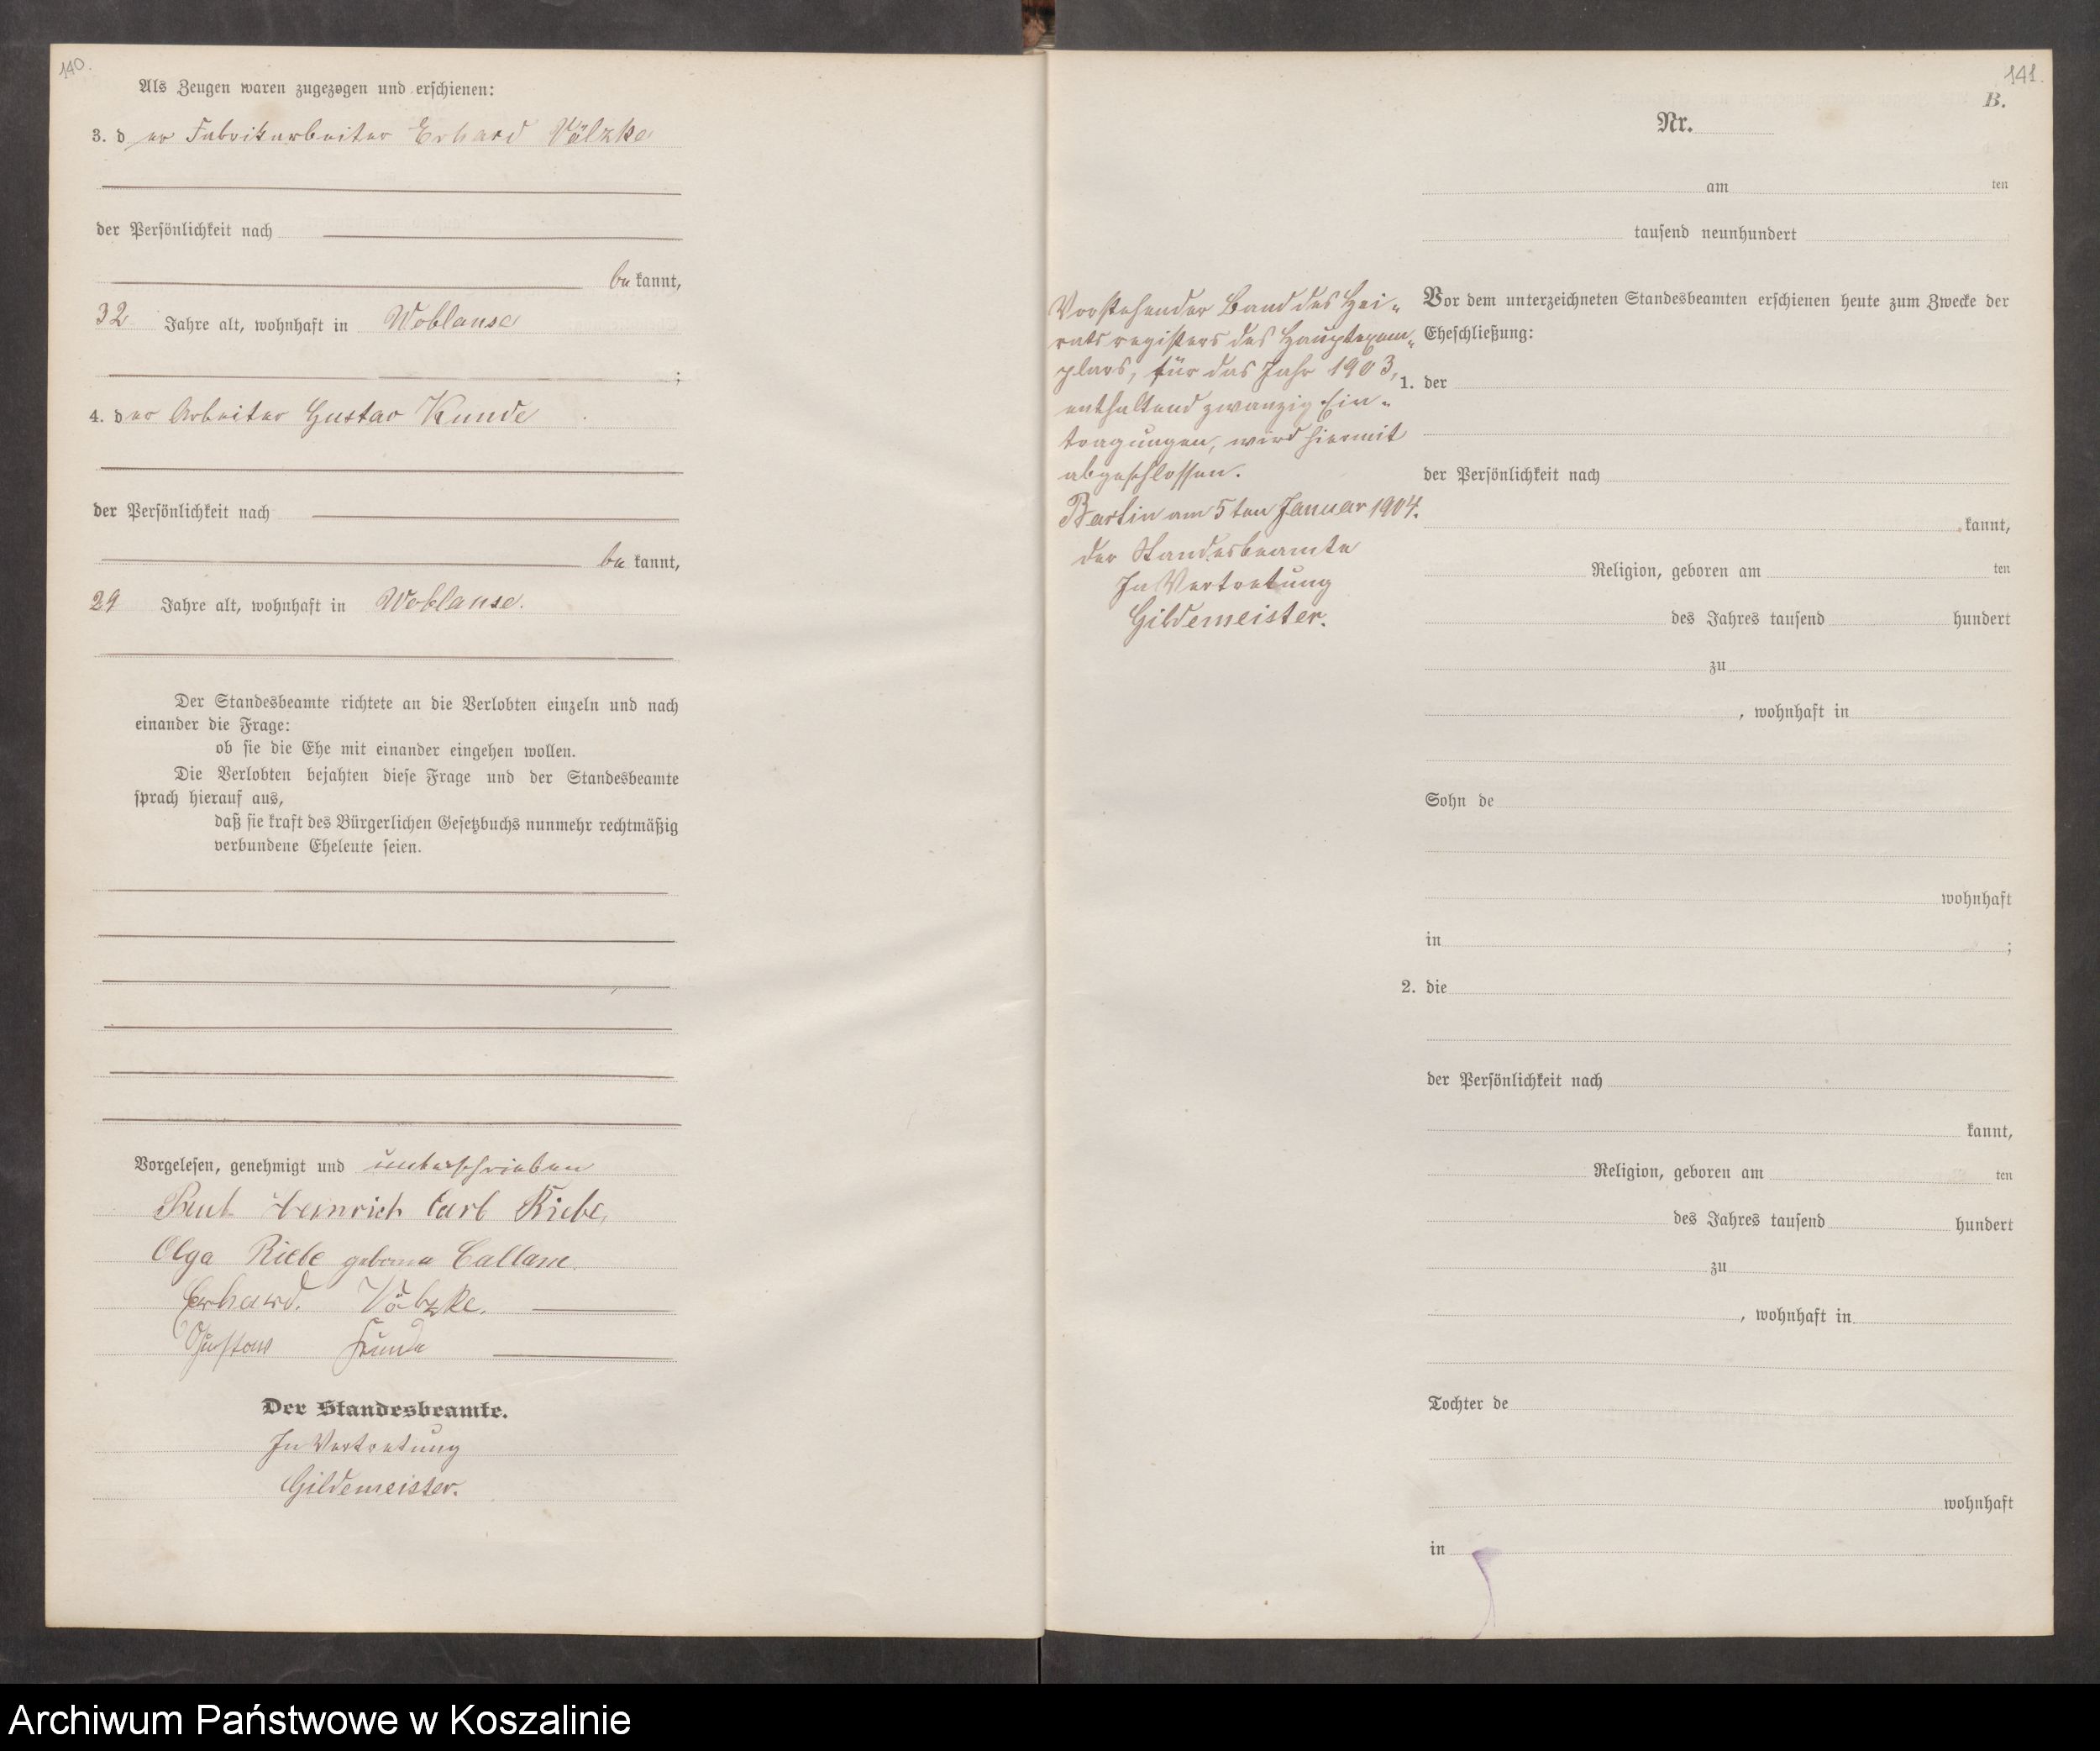 140.
Als Zeugen waren zugezogen und erschienen:
3. der Fabrikarbeiter Erhard Völzke
der Persönlichkeit nach
be kannt,
32 Jahre alt, wohnhaft in Woblanse
;
4. der Arbeiter Gustav Kunde
der Persönlichkeit nach
be kannt,
29 Jahre alt, wohnhaft in Woblanse.
Der Standesbeamte richtete an die Verlobten einzeln und nach
einander die Frage:
ob sie die Ehe mit einander eingehen wollen.
Die Verlobten bejahten diese Frage und der Standesbeamte
sprach hierauf aus,
daß sie kraft des Bürgerlichen Gesetzbuchs nunmehr rechtmäßig
verbundene Eheleute seien.
Vorgelesen, genehmigt und unterschrieben
Heinrich Carl Riebe,
Olga Riebe geborne
Erhard. Völzke.
Gustav Kunde
Der Standesbeamte.
In Vertretung
Gildemeister.
141.
B.
Nr.
am ten
tausend neunhundert
Vorstehender Band des Hei-
ratsregisters des Hauptexem-
plars, für das Jahr 1903,
enthaltend zwanzig Ein-
tragungen, wird hiermit
abgeschlossen.
Bartin am 5ten Januar 1904.
der Standesbeamte
In Vertretung
Gildemeister.
Vor dem unterzeichneten Standesbeamten erschienen heute zum Zwecke der
Eheschließung:
1. der
der Persönlichkeit nach
kannt,
Religion, geboren am ten
des Jahres tausend hundert
zu
, wohnhaft in
Sohn de
wohnhaft
in ;
2. die
der Persönlichkeit nach
kannt,
Religion, geboren am ten
des Jahres tausend hundert
zu
, wohnhaft in
Tochter de
wohnhaft
in
Archiwum Państwowe w Koszalinie